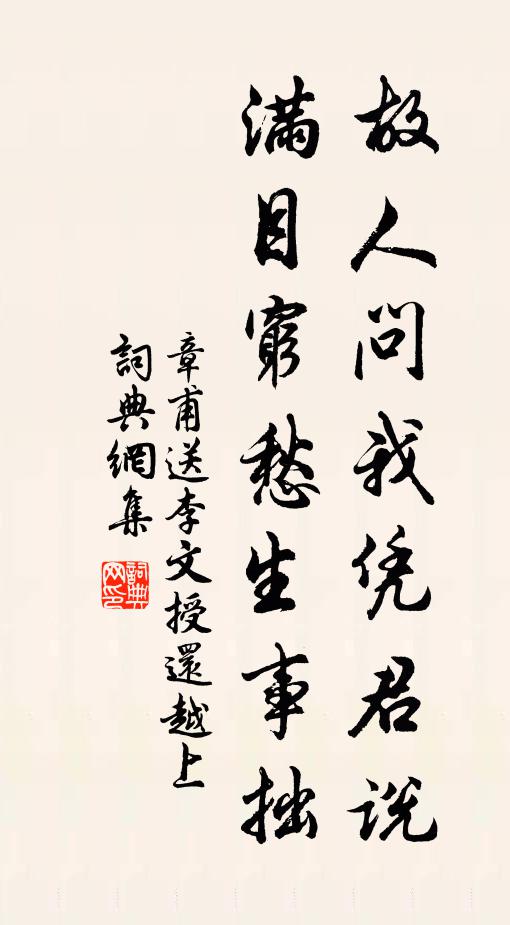 故人问我凭君说
满目窮愁生事拙
章甫送李文授還越上
詞典網集
詞典网印